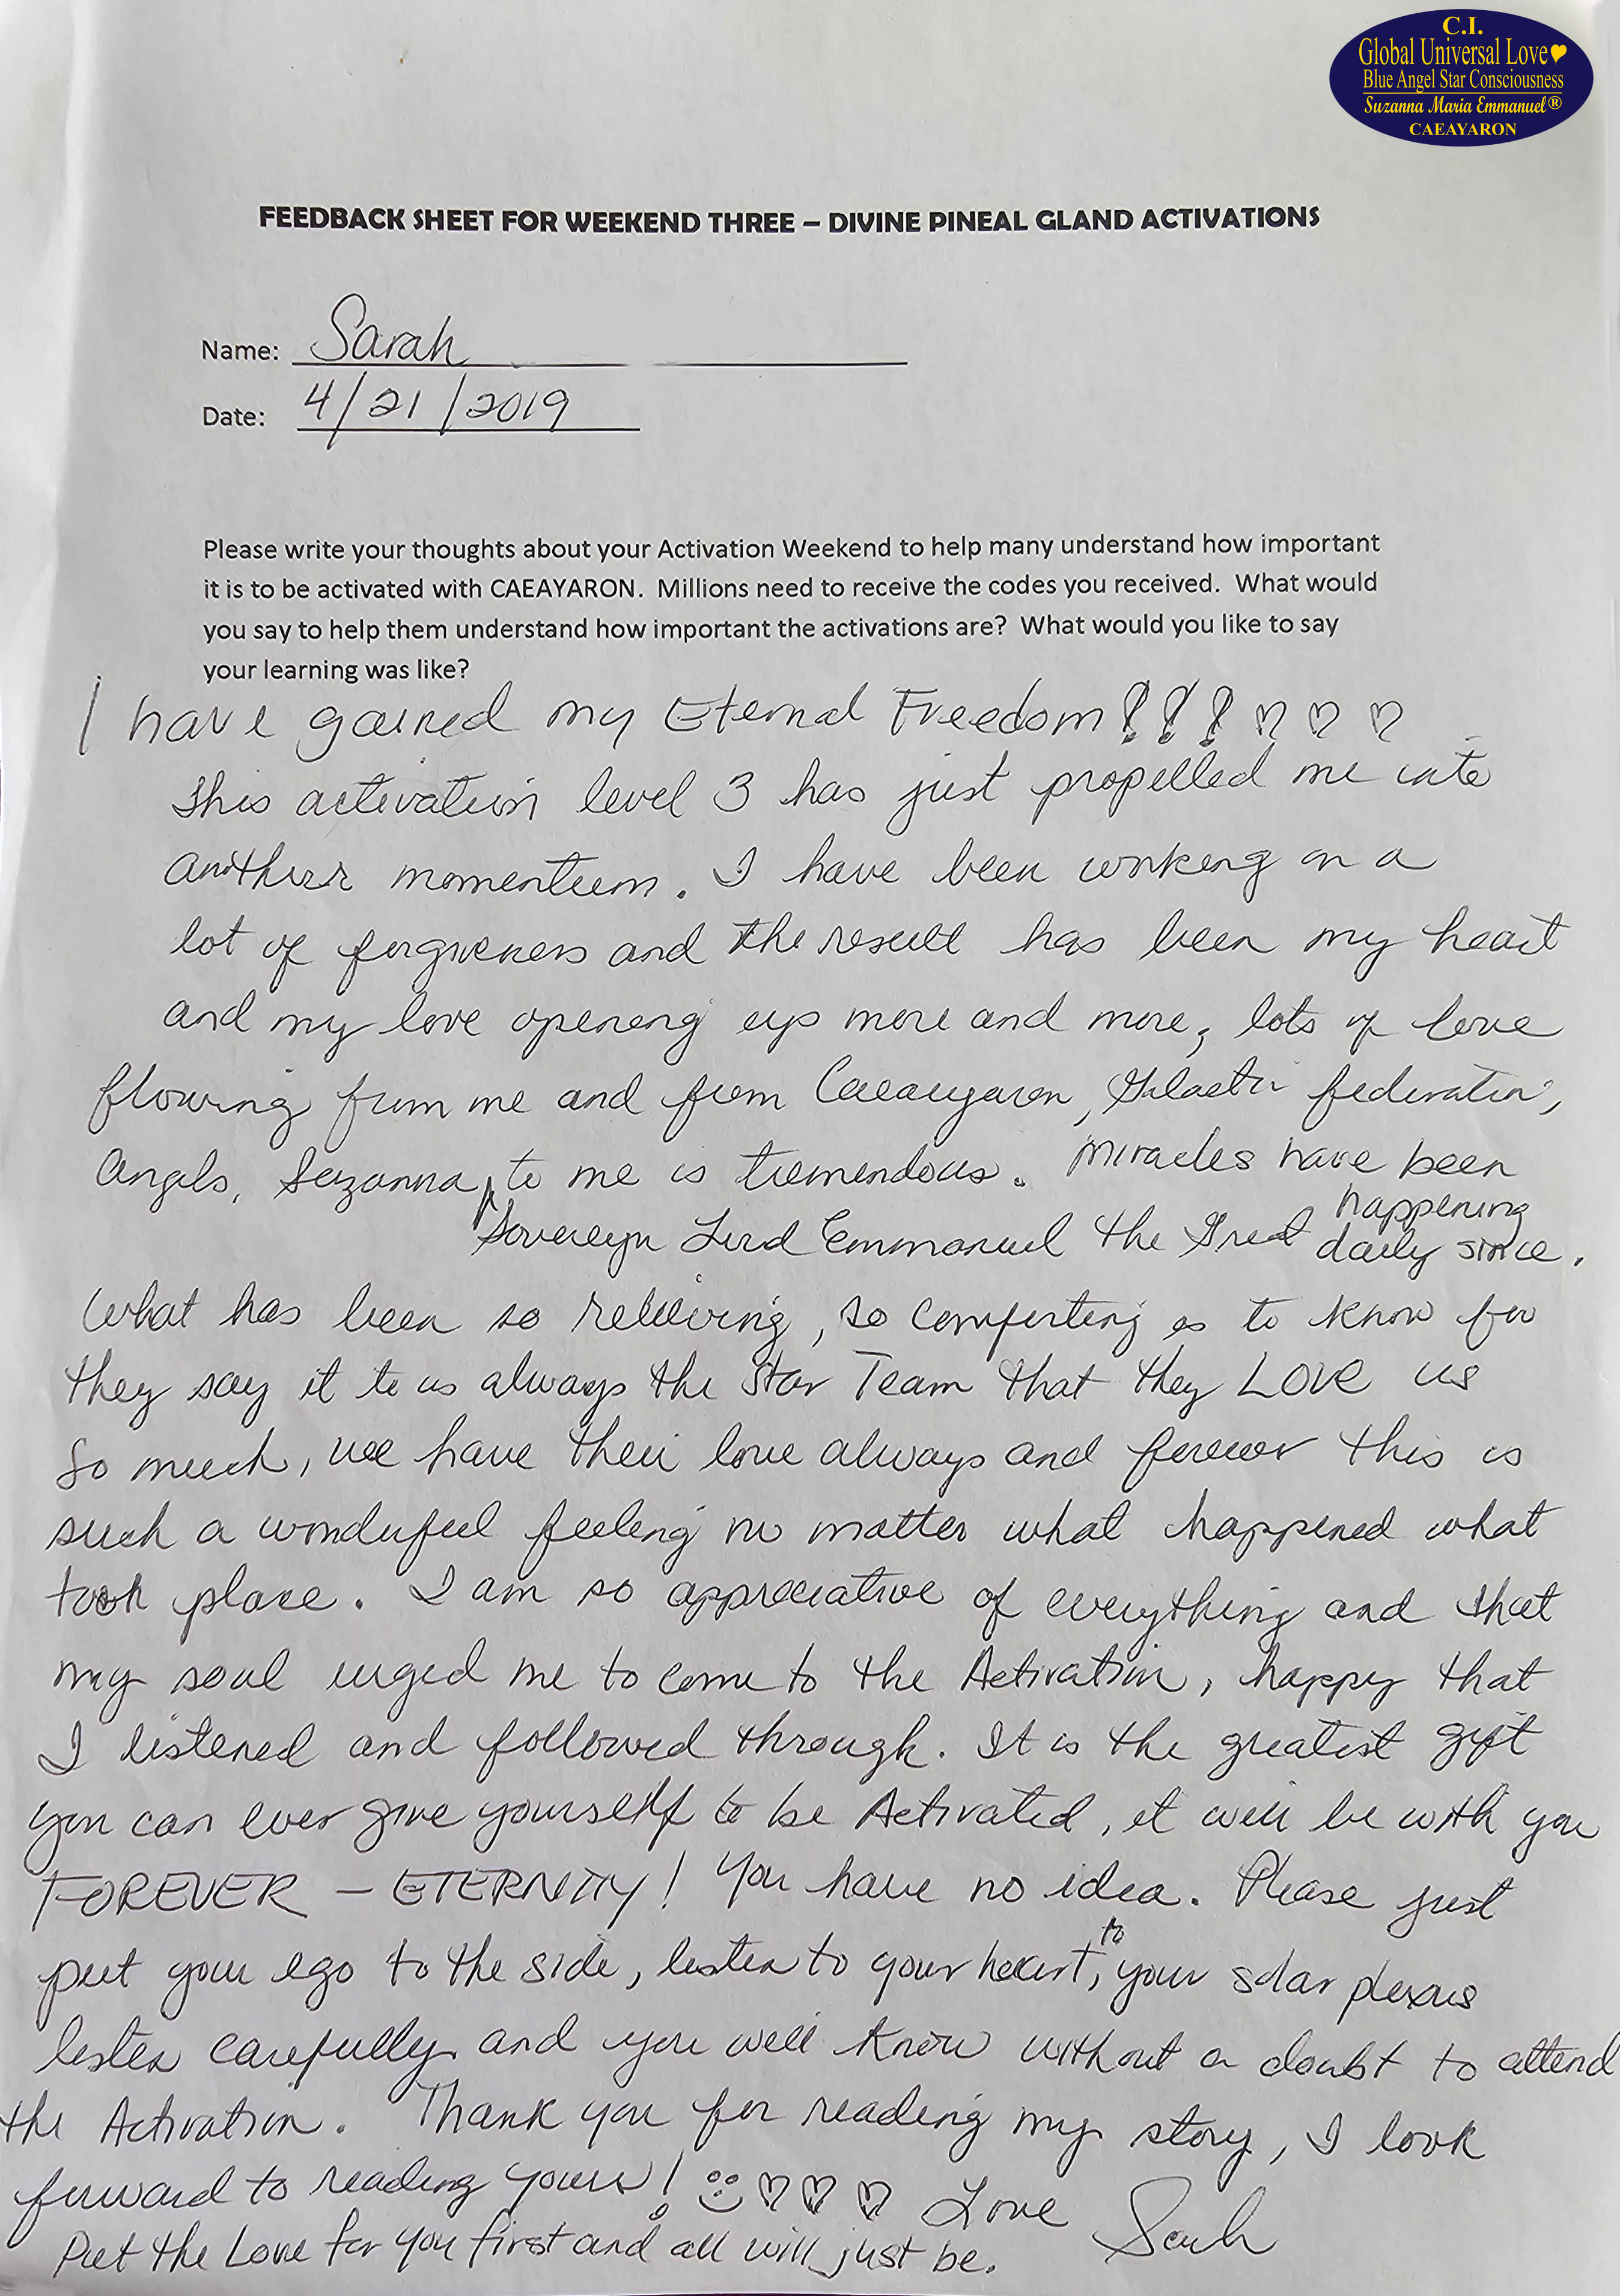 C.I.
Global Universal Love
Blue Angel Star Consciousness
Suzanna Maria Emmanuel®
CAEAYARON
FEEDBACK SHEET FOR WEEKEND THREE – DIVINE PINEAL GLAND ACTIVATIONS
Name: Sarah
Date: 4/21/2019
Please write your thoughts about your Activation Weekend to help many understand how important
it is to be activated with CAEAYARON. Millions need to receive the codes you received. What would
you say to help them understand how important the activations are? What would you like to say
your learning was like?
I have gained my Eternal Freedom!!! ♡ ♡ ♡
This activation level 3 has just propelled me into
another momentum. I have been working on a
lot of forgiveness and the result has been my heart
and my love opening up more and more, lots of love
flowing from me and from Caeayaron, Galactic federation,
Angels, Suzanna, to me is tremendous. Miracles have been
happening
Sovereign Lord Emmanuel the Great daily since.
What has been so relieving, so comforting is to know for
they say it to us always the Star Team that they LOVE us
so much, we have their love always and forever this is
such a wonderful feeling no matter what happened what
took place. I am so appreciative of everything and that
my soul urged me to come to the Activation, happy that
I listened and followed through. It is the greatest gift
you can ever give yourself to be Activated, it will be with you
FOREVER – ETERNITY! You have no idea. Please just
to
put your ego to the side, listen to your heart, your solar plexus
listen carefully and you will know without a doubt to attend
the Activation. Thank you for reading my story, I look
forward to reading yours! ♡ ♡ ♡ Love Sarah
Put the Love for you first and all will just be.